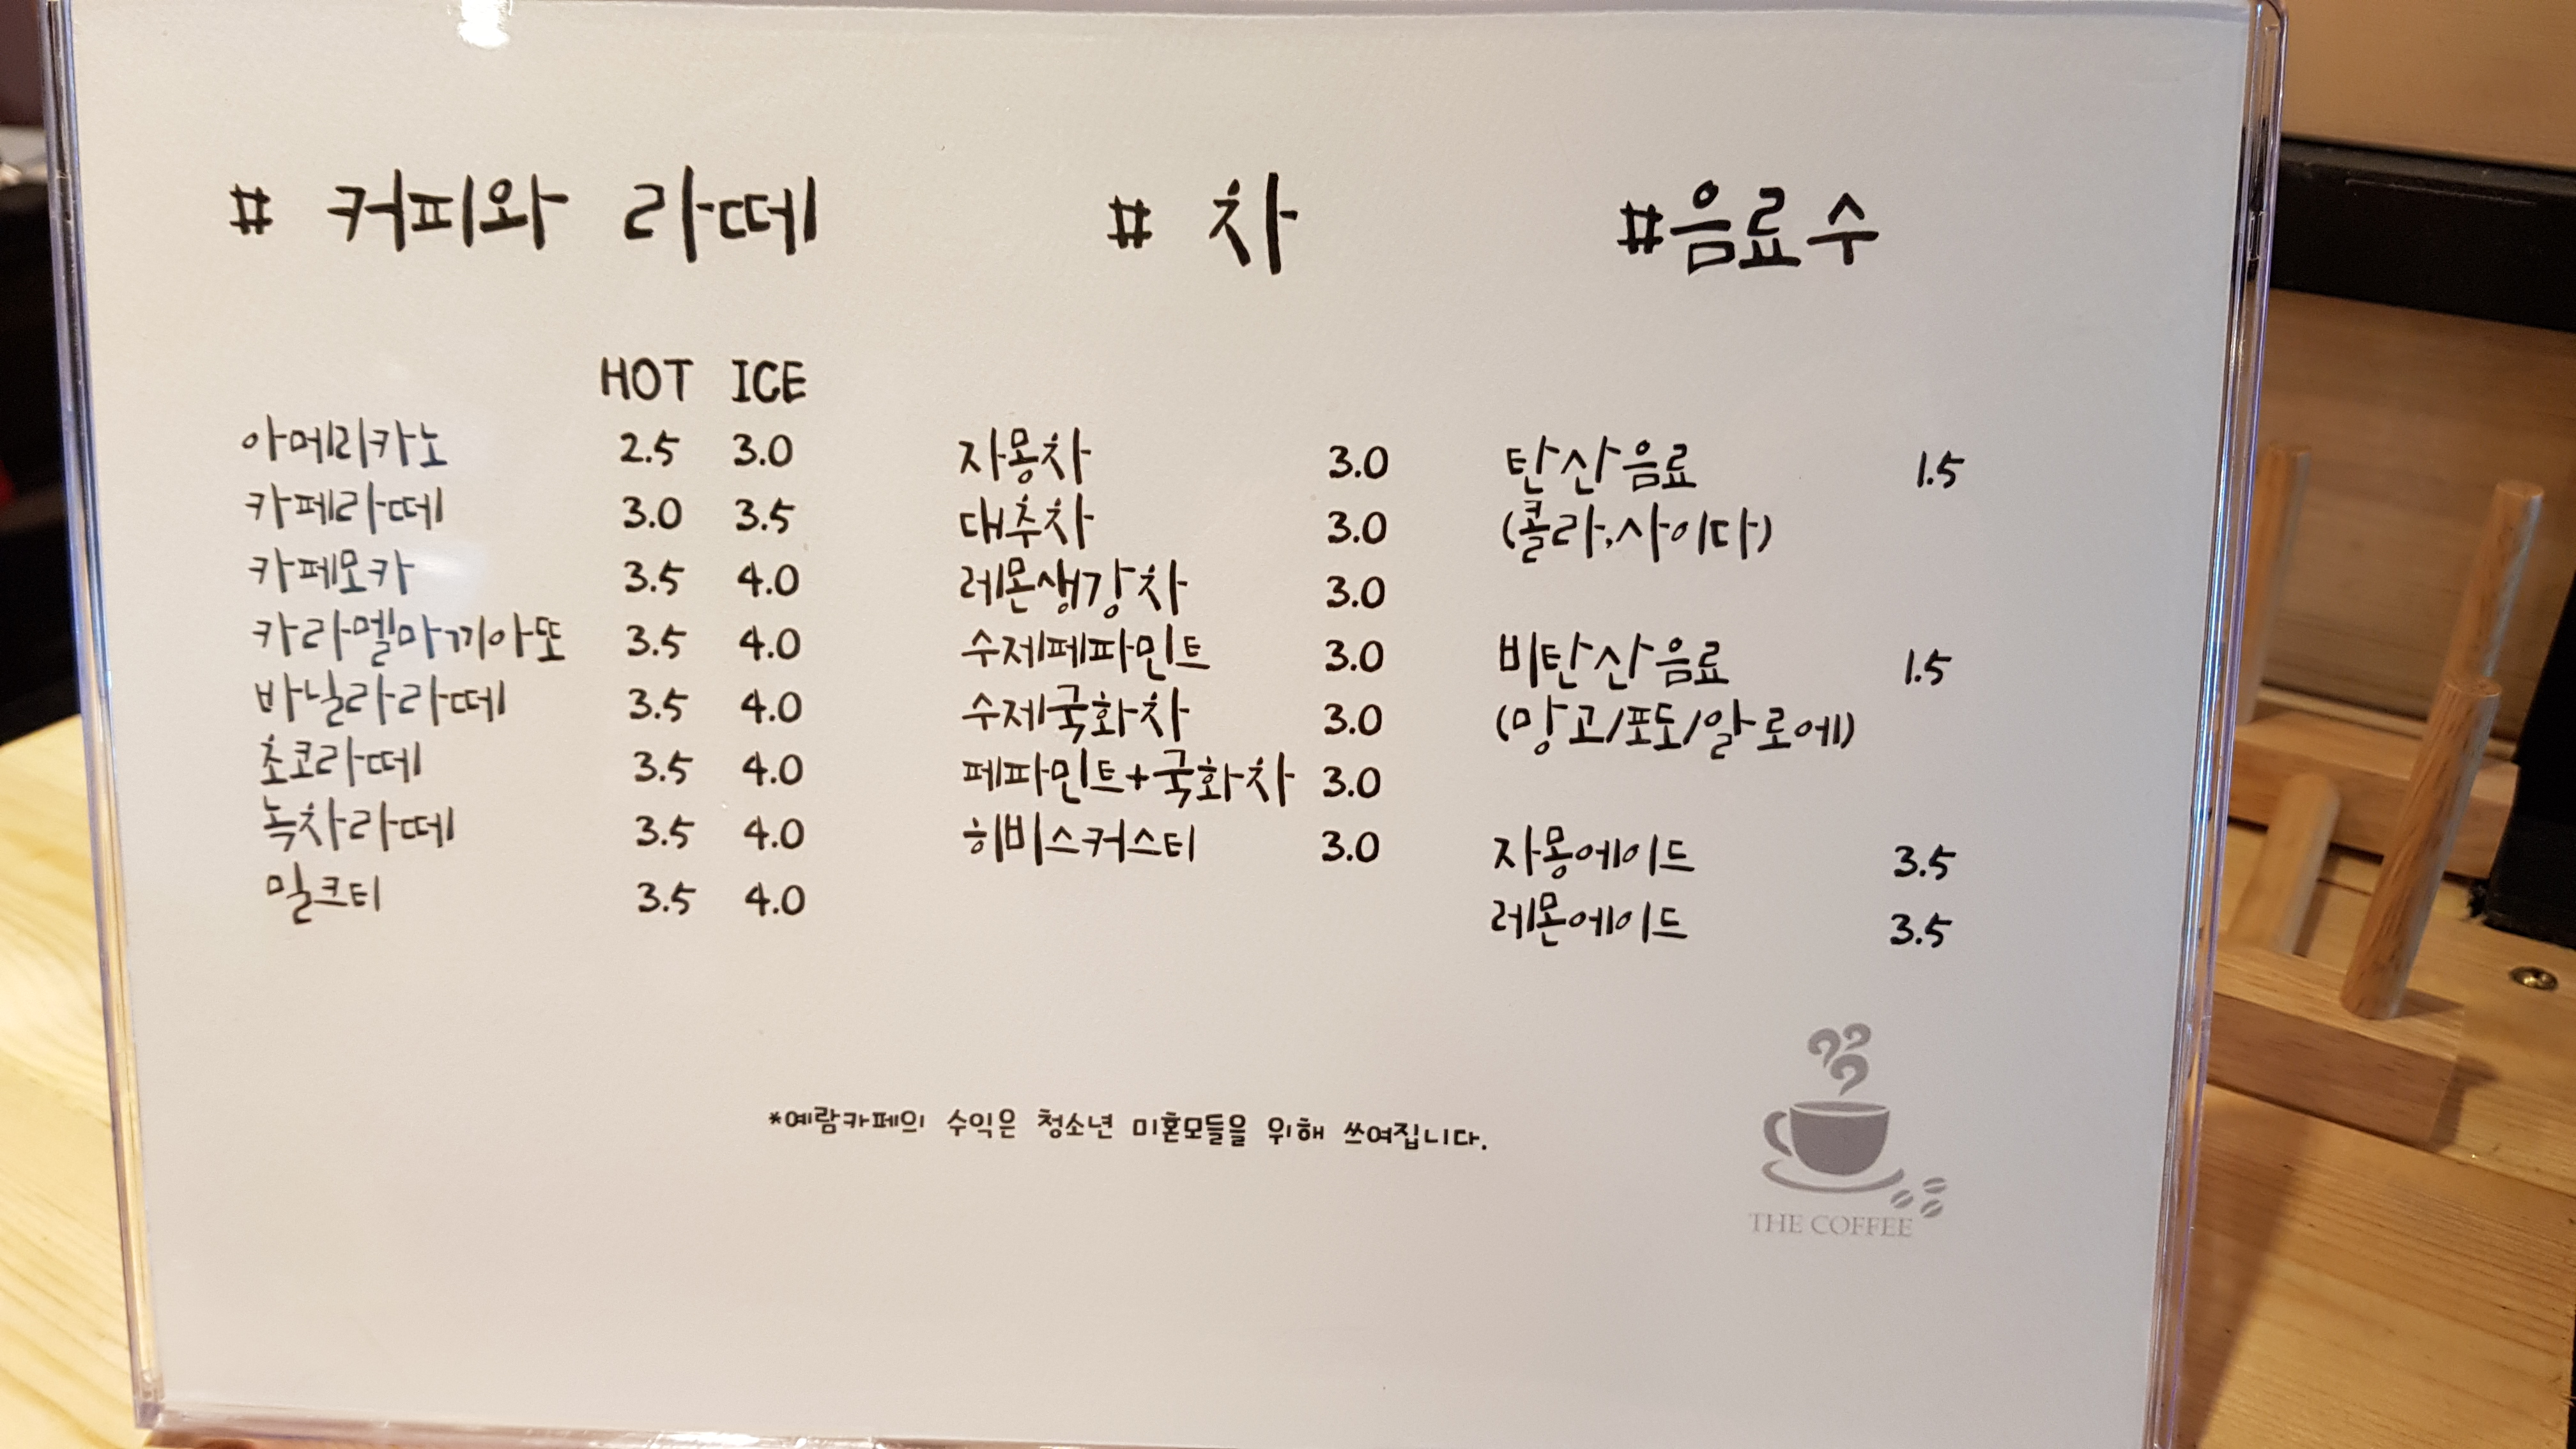 # 커피와 라떼
HOT ICE
아메리카노 2.5 3.0
카페라떼 3.0 3.5
카페모카 3.5 4.0
카라멜마끼아또 3.5 4.0
바닐라라떼 3.5 4.0
초코라떼 3.5 4.0
녹차라떼 3.5 4.0
밀크티 3.5 4.0
# 차
자몽차 3.0
대추차 3.0
레몬생강차 3.0
수제페파민트 3.0
수제국화차 3.0
페파민트+국화차 3.0
히비스커스티 3.0
#음료수
탄산음료 1.5
(콜라,사이다)
비탄산음료 1.5
(망고/포도/알로에)
자몽에이드 3.5
레몬에이드 3.5
*예람카페의 수익은 청소년 미혼모들을 위해 쓰여집니다.
THE COFFEE